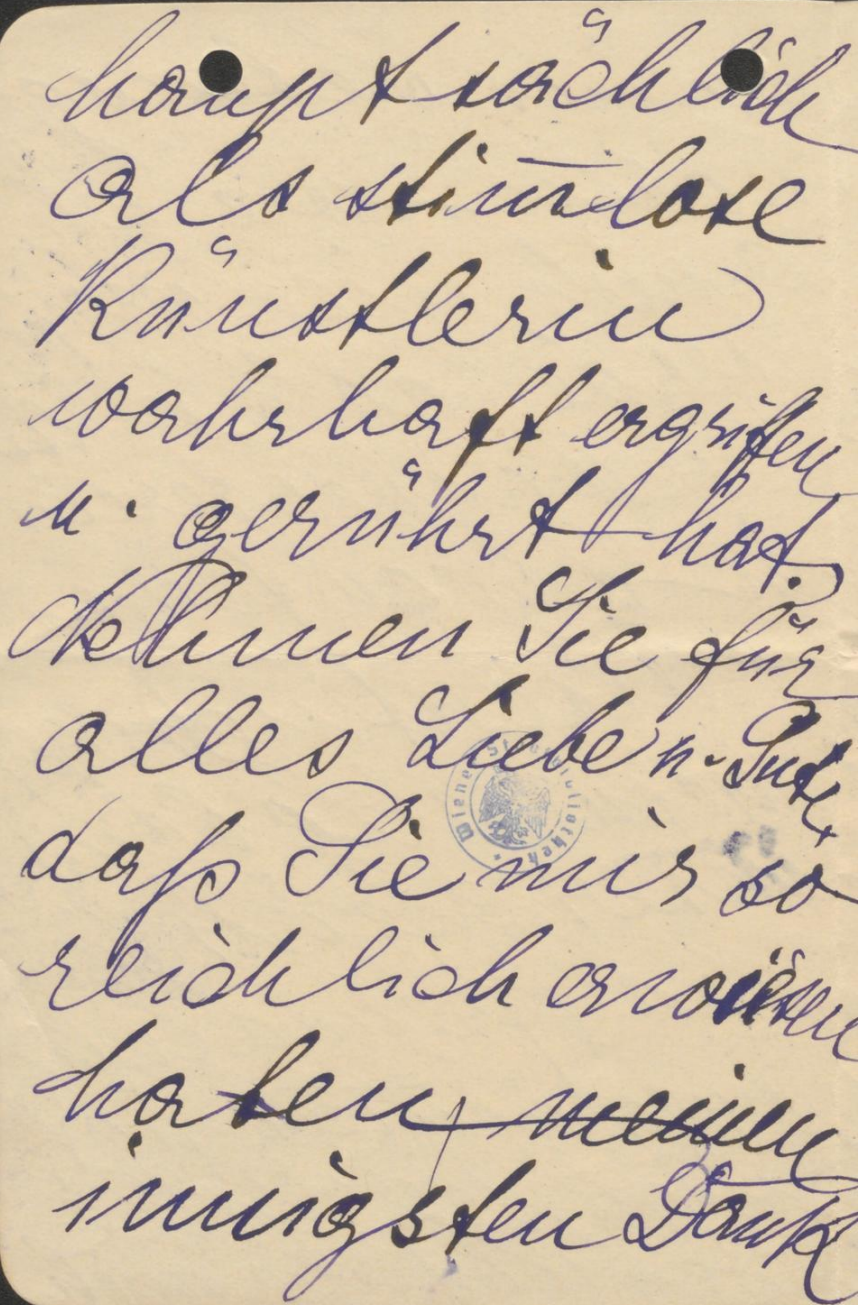 hauptsächlich
als stim̅lose
Künstlerin
wahrhaft ergriffen
u. gerührt hat.
Nehmen Sie für
alles Liebe u. Gute,
daß Sie mir so
reichlich erwiesen
haben, meinen
innigsten Dank
Wiener Stadtbibliothek